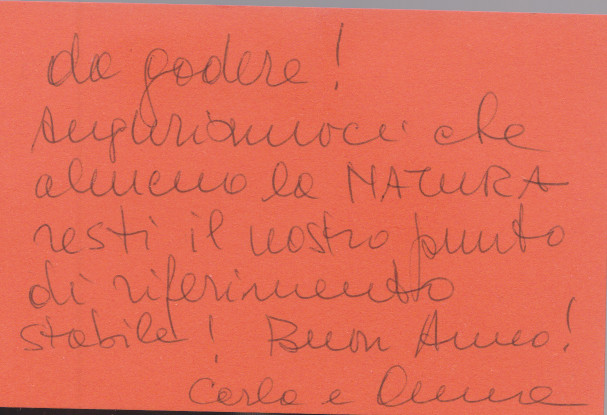 da godere!
Auguriamoci che
almeno la NATURA
resti il nostro punto
di riferimento
stabile! Buon Anno!
Carla e